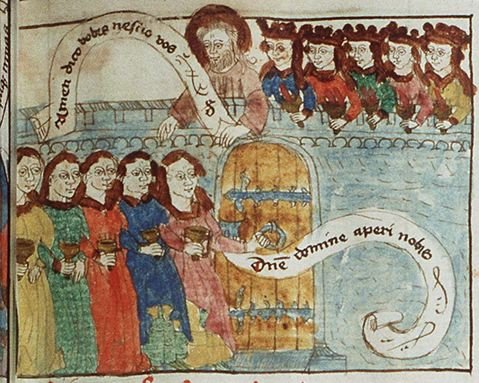 Amen dico vobis nescio vos
Dnē domine aperi nobis